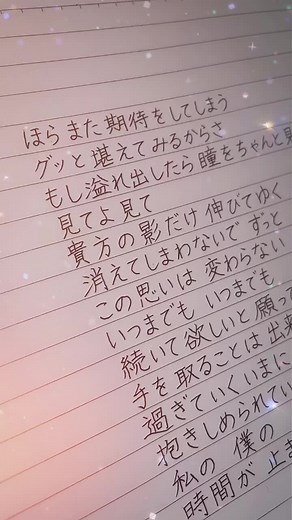 ほら また 期待をしてしまう
グッと 堪えてみるからさ
もし溢れ出したら 瞳をちゃんと
見てよ 見て
貴方の 影だけ 伸びてゆく
消えてしまわないで ずっと
この思いは 変わらない
いつまでも いつまでも
続いて欲しいと 願っ
手を 取ることは 出来
過ぎていく いまに
抱きしめられてい
私の 僕の
時間が 止ま